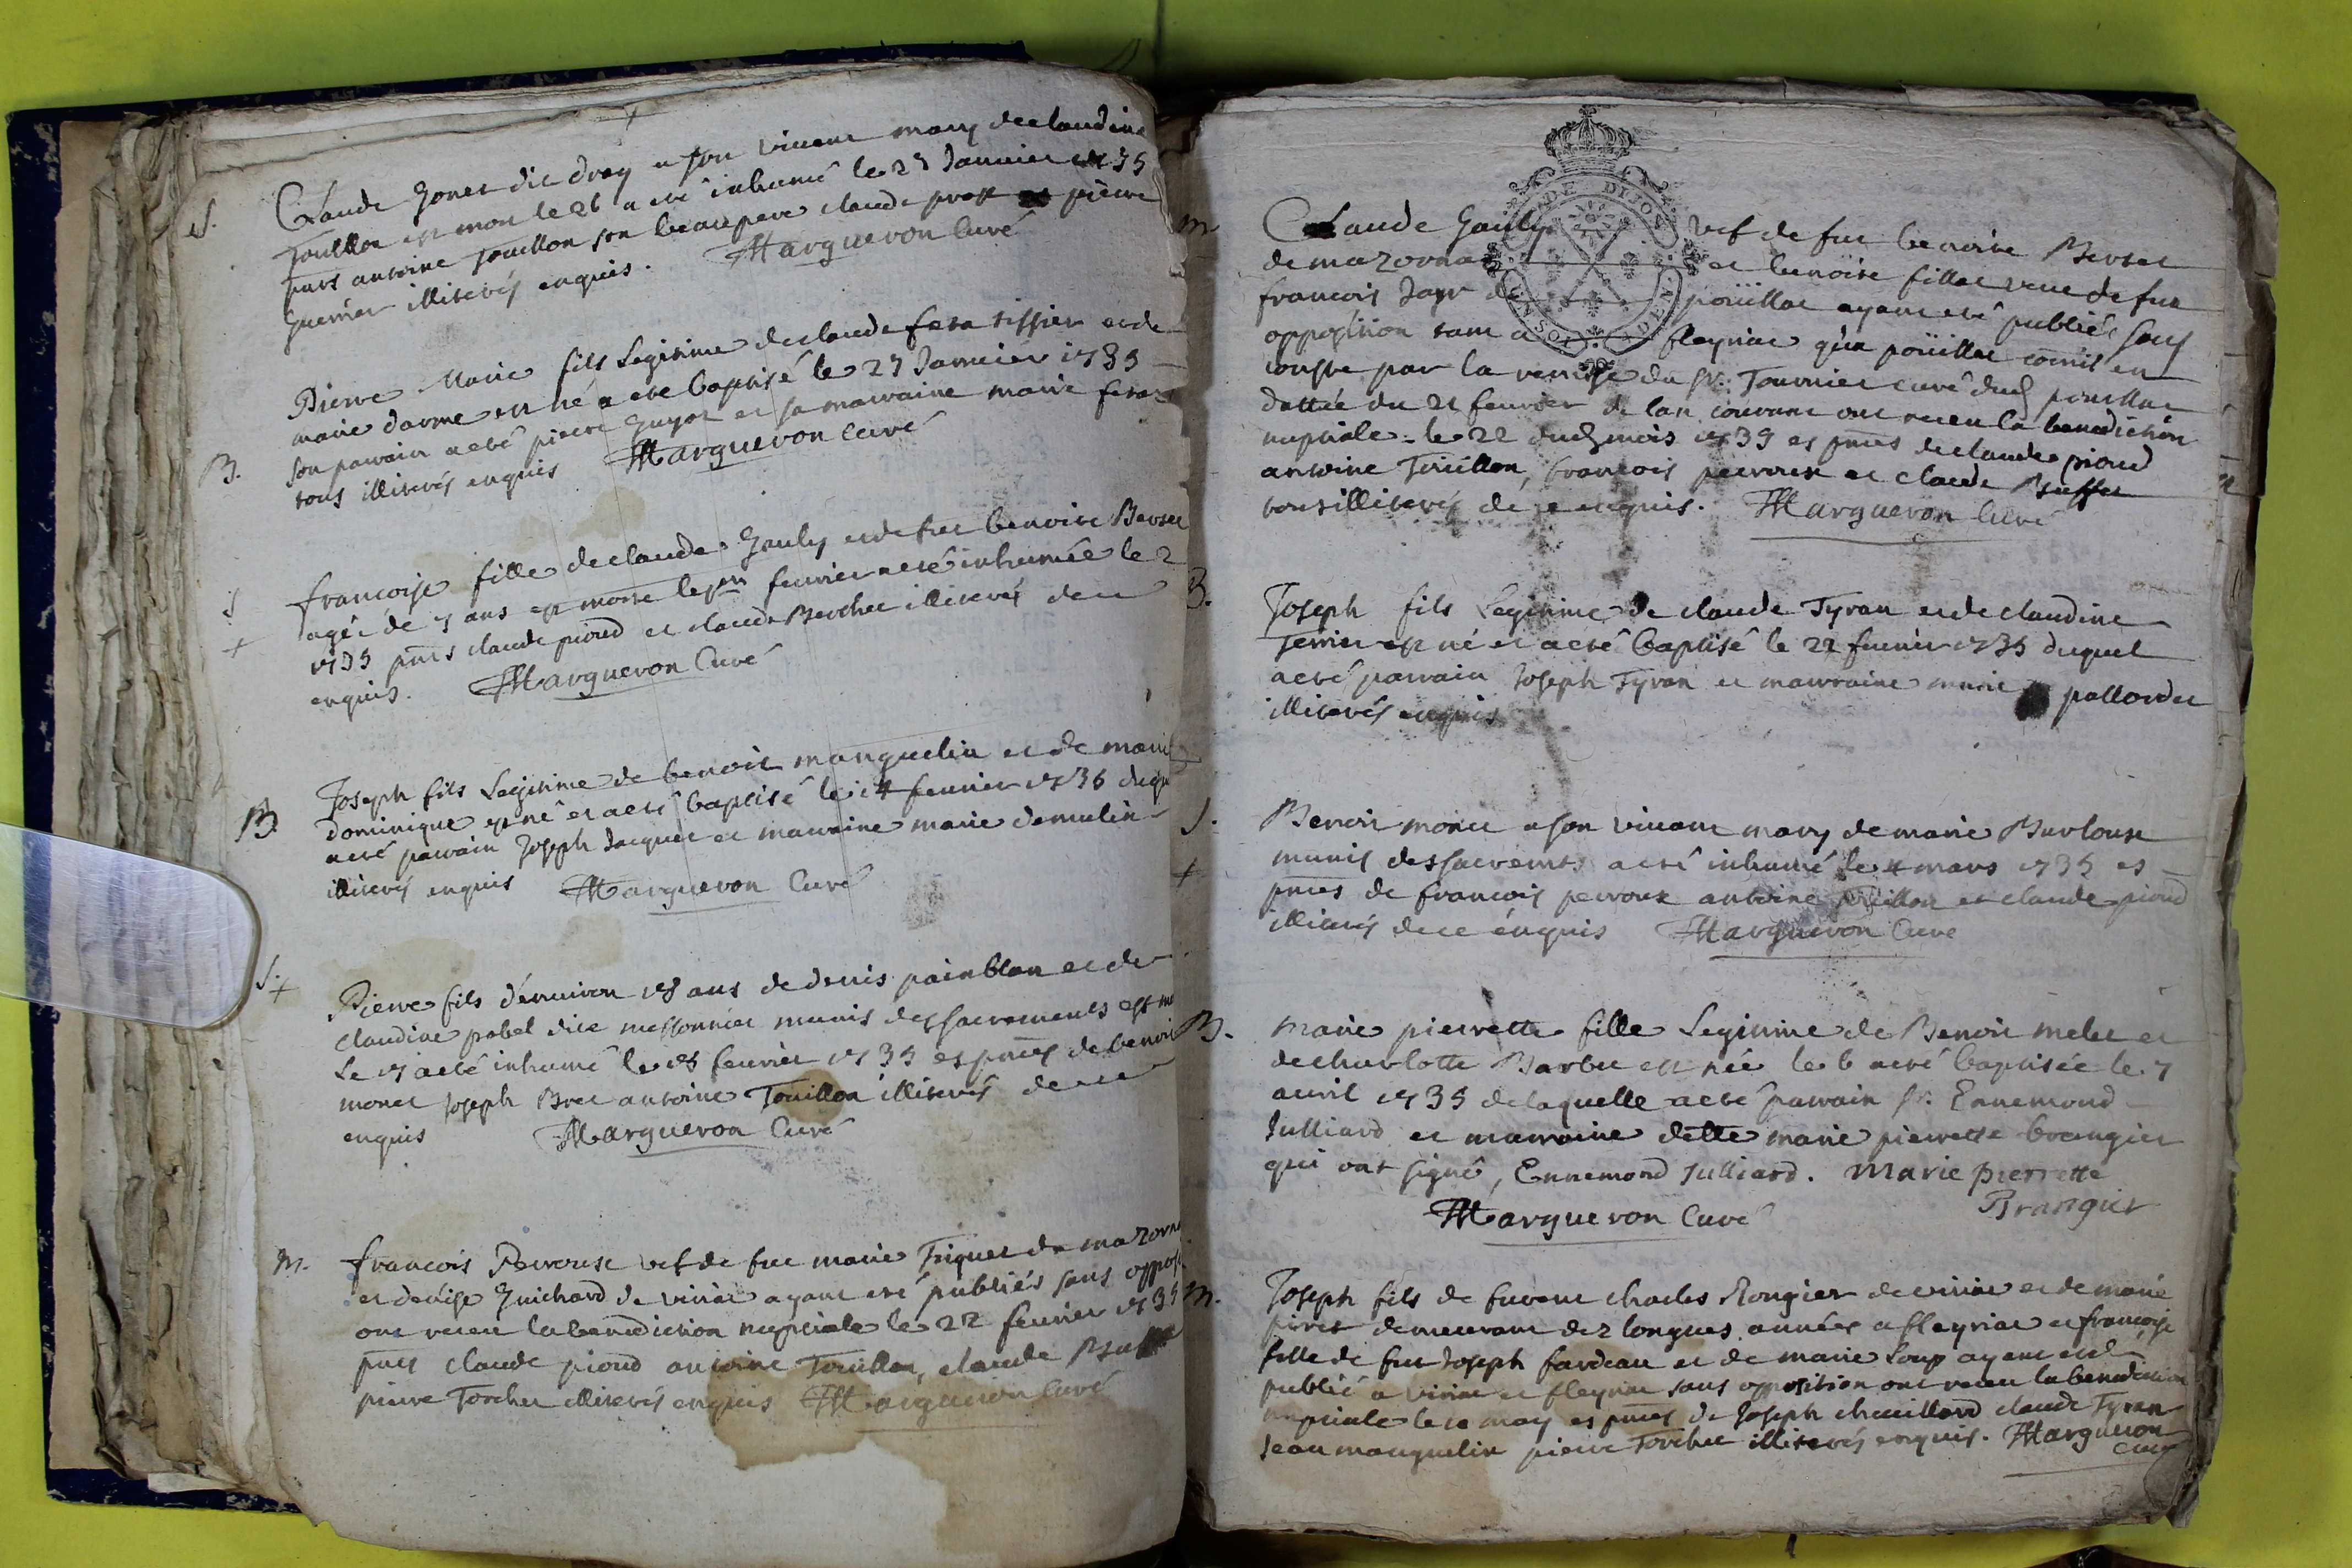 S.
Claude Gonet dit dray a son vivant mary de claudine
Touillon est mort le 26 a eté inhumé le 27 Janvier 1735
pnts antoine Touillon son beaupere claude prost pierre
Guerrier illiterés enquis. Margueron Curé
B.
Pierre Marie fils Legitime de claude fera tissier et de
marie darme est né a eté baptisé le 27 Janvier 1735
son parain a eté pierre Guyot et sa maraine marie fera
tous illiterés enquis Margueron Curé
S
+
francoise fille de claude Gauly et de fue benoite Berset
agée de 7 ans est morte le 1er fevrier a eté inhumée le 2
1735 pnts claude pioud et claude Berchet illiterés de ce
enquis. Margueron Curé
B.
Joseph fils Legitime de benoit manguelin et de marie
dominique est né et a eté baptisé le 14 fevrier 1735 duquel
a eté parain Joseph Jacquet et maraine marie demulin
illiterés enquis Margueron Curé
S.
+
Pierre fils d'environ 18 ans de denis painblan et de
claudine pobel dite messonnier munis des sacrements est mort
Le 17 a eté inhumé le 18 fevrier 1735 es pntes de benoit
monet Joseph Bret antoine Touillon illiterés de ce
enquis Margueron Curé
M.
francois Perroux vef de fue marie Triquet de mazornay
et denise Guichard de viriat ayant eté publiés sans oppos
ont receu la benediction nuptiale le 22 fevrier 1735
pnts claude pioud antoine Touillon, claude Buffet
pierre Torchet illiterés enquis Margueron Curé
GEN. DE DIJON
M.
Claude Gauly vef de fue benoite Berset
de mazornay et benoite fillet veuve de fue
francois Jayr de poüillat ayant eté publiés sans
opposition tant a fleyriat qu'a poüillat comme il en
conste par la remise du Sr. Tournier curé dud poüillat
dattée du 21 fevrier de lan courant ont receu la benediction
nuptiale le 22 dud mois 1735 es pntes de claude pioud
antoine Touillon, francois perroux et claude Buffet
tous illiterés de ce enquis. Margueron Curé
B.
Joseph fils Legitime de claude Tyran et de claudine
Terrier est né et a eté baptisé le 22 fevrier 1735 duquel
a eté parrain Joseph Tyran et marraine marie pallordet
illiterés enquis
S.
+
Benoit monet a son vivant mary de marie Burtoux
munis des sacremts a eté inhumé le 4 mars 1735 es
pntes de francois perroux antoine Touillon et claude pioud
illiterés de ce enquis Margueron Curé
B.
Marie pierrette fille Legitime de Benoit melet et
de charlotte Barbet est née le 6 a eté baptisée le 7
avril 1735 de laquelle a eté parrain Sr. Ennemond
Julliard et marraine dlle marie pierrette brangier
qui ont signé, Ennemond Julliard. Marie pierrette
Brangier
Margueron Curé
M.
Joseph fils de fuvent charles Rongier de viriat et de marie
piret demeurant dez longues années a fleyriat et francoise
fille de fut Joseph fardeau et de marie Loup ayent eté
publié a viriat et fleyriat sans opposition ont receu la benediction
nuptiale le 10 may es pntes de Joseph chevillard claude Tyran
Jean manguelin pierre Torchet illiterés enquis. Margueron
Curé